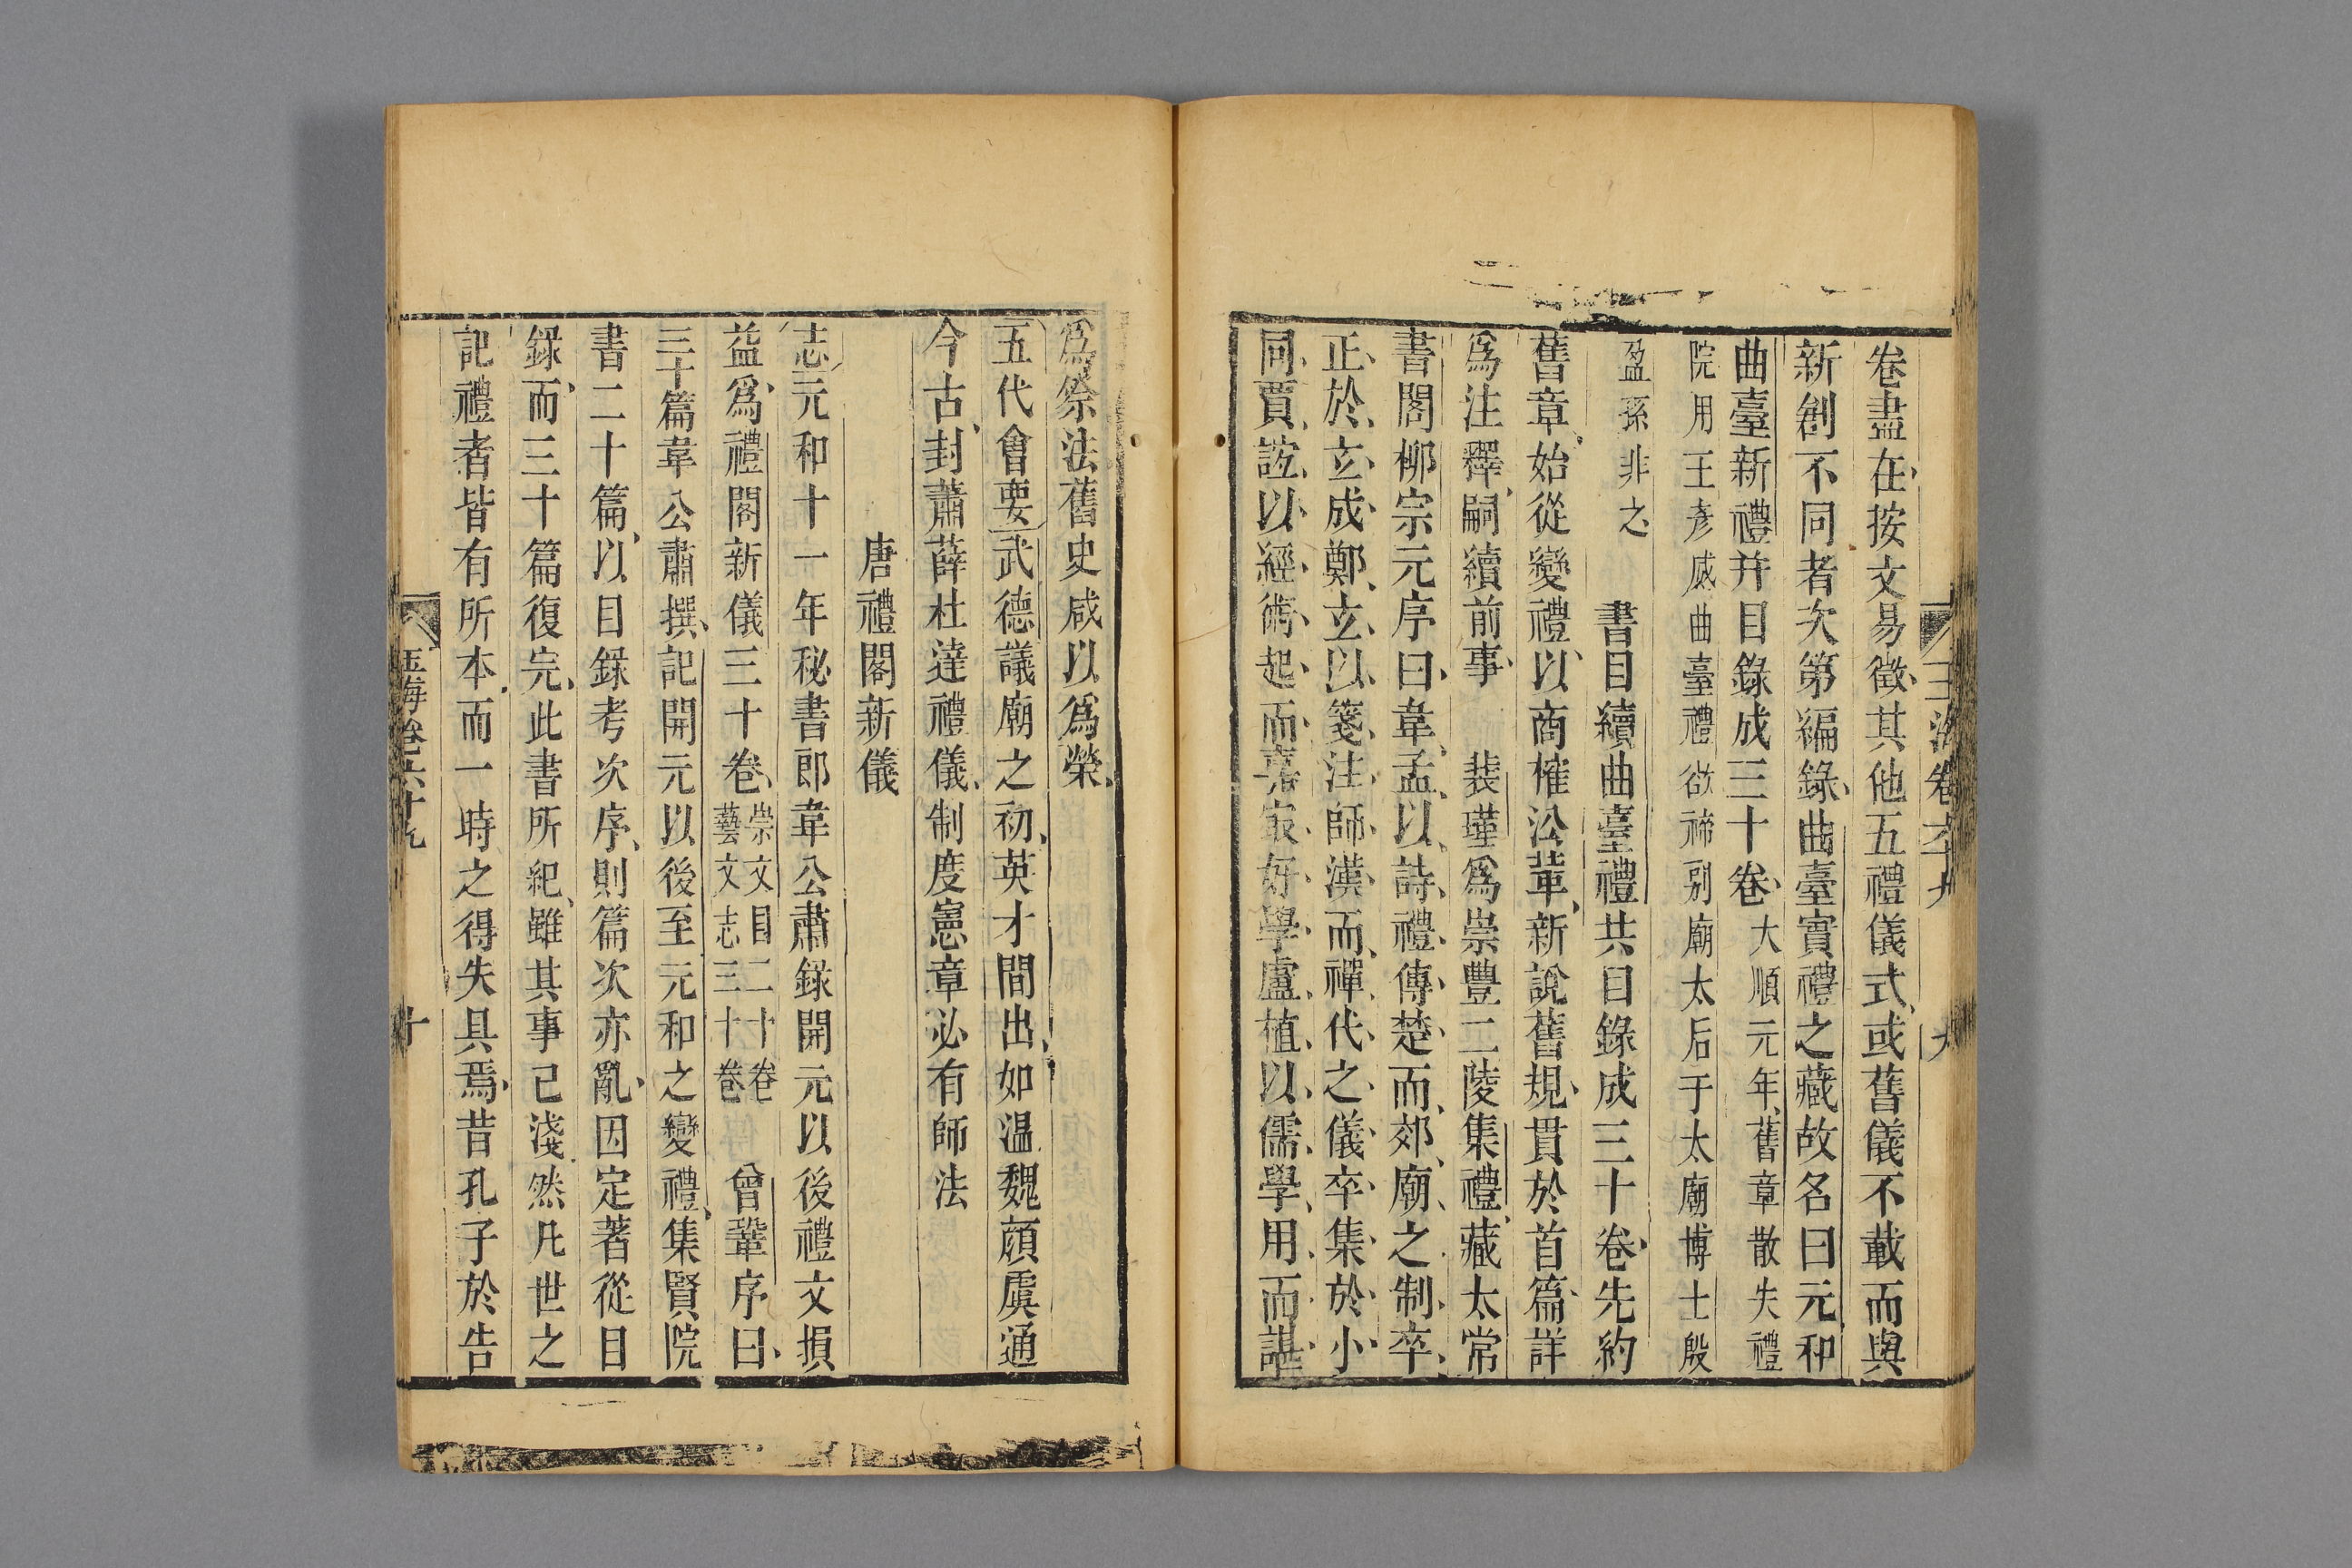 玉海卷六十九 九
卷盡在按文易徵其他五禮儀式或舊儀不載而與
新創不同者次第編錄曲臺實禮之藏故名曰元和
曲臺新禮并目錄成三十卷大順元年舊章散失禮
院用王彥威曲臺禮欲禘別廟太后于太廟博士殷
盈孫非之 書目續曲臺禮共目錄成三十卷先約
舊章始從變禮以商榷沿革新說舊規貫於首篇詳
爲注釋嗣續前事 裴瑾爲崇豐二陵集禮藏太常
書閣柳宗元序曰韋孟以詩禮傳楚而郊廟之制卒
正於玄成鄭玄以箋注師漢而禪代之儀卒集於小
同賈誼以經術起而嘉最好學盧植以儒學用而諶
爲祭法舊史咸以爲榮
五代會要武德議廟之初英才間出如溫魏顏虞通
今古封蕭薛杜達禮儀制度憲章必有師法
唐禮閣新儀
志元和十一年秘書郎韋公肅錄開元以後禮文損
益爲禮閣新儀三十卷崇文目二十卷
藝文志三十卷 曾鞏序曰
三十篇韋公肅撰記開元以後至元和之變禮集賢院
書二十篇以目錄考次序則篇次亦亂因定著從目
錄而三十篇復完此書所紀雖其事已淺然凡世之
記禮者皆有所本而一時之得失具焉昔孔子於告
玉海卷六十九 十